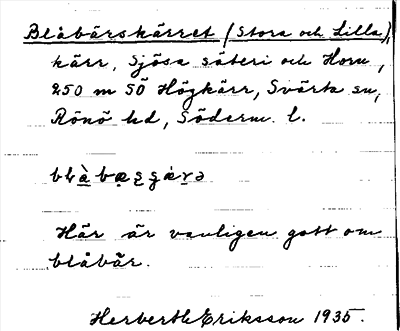 Blåbärskärret (Stora och Lilla),
kärr, Sjösa säteri och Horn,
250 m SÖ Högkärr, Svärta sn,
Rönö hd, Söderm. l.
Här är vanligen gott om
blåbär.
Herberth Eriksson 1935.